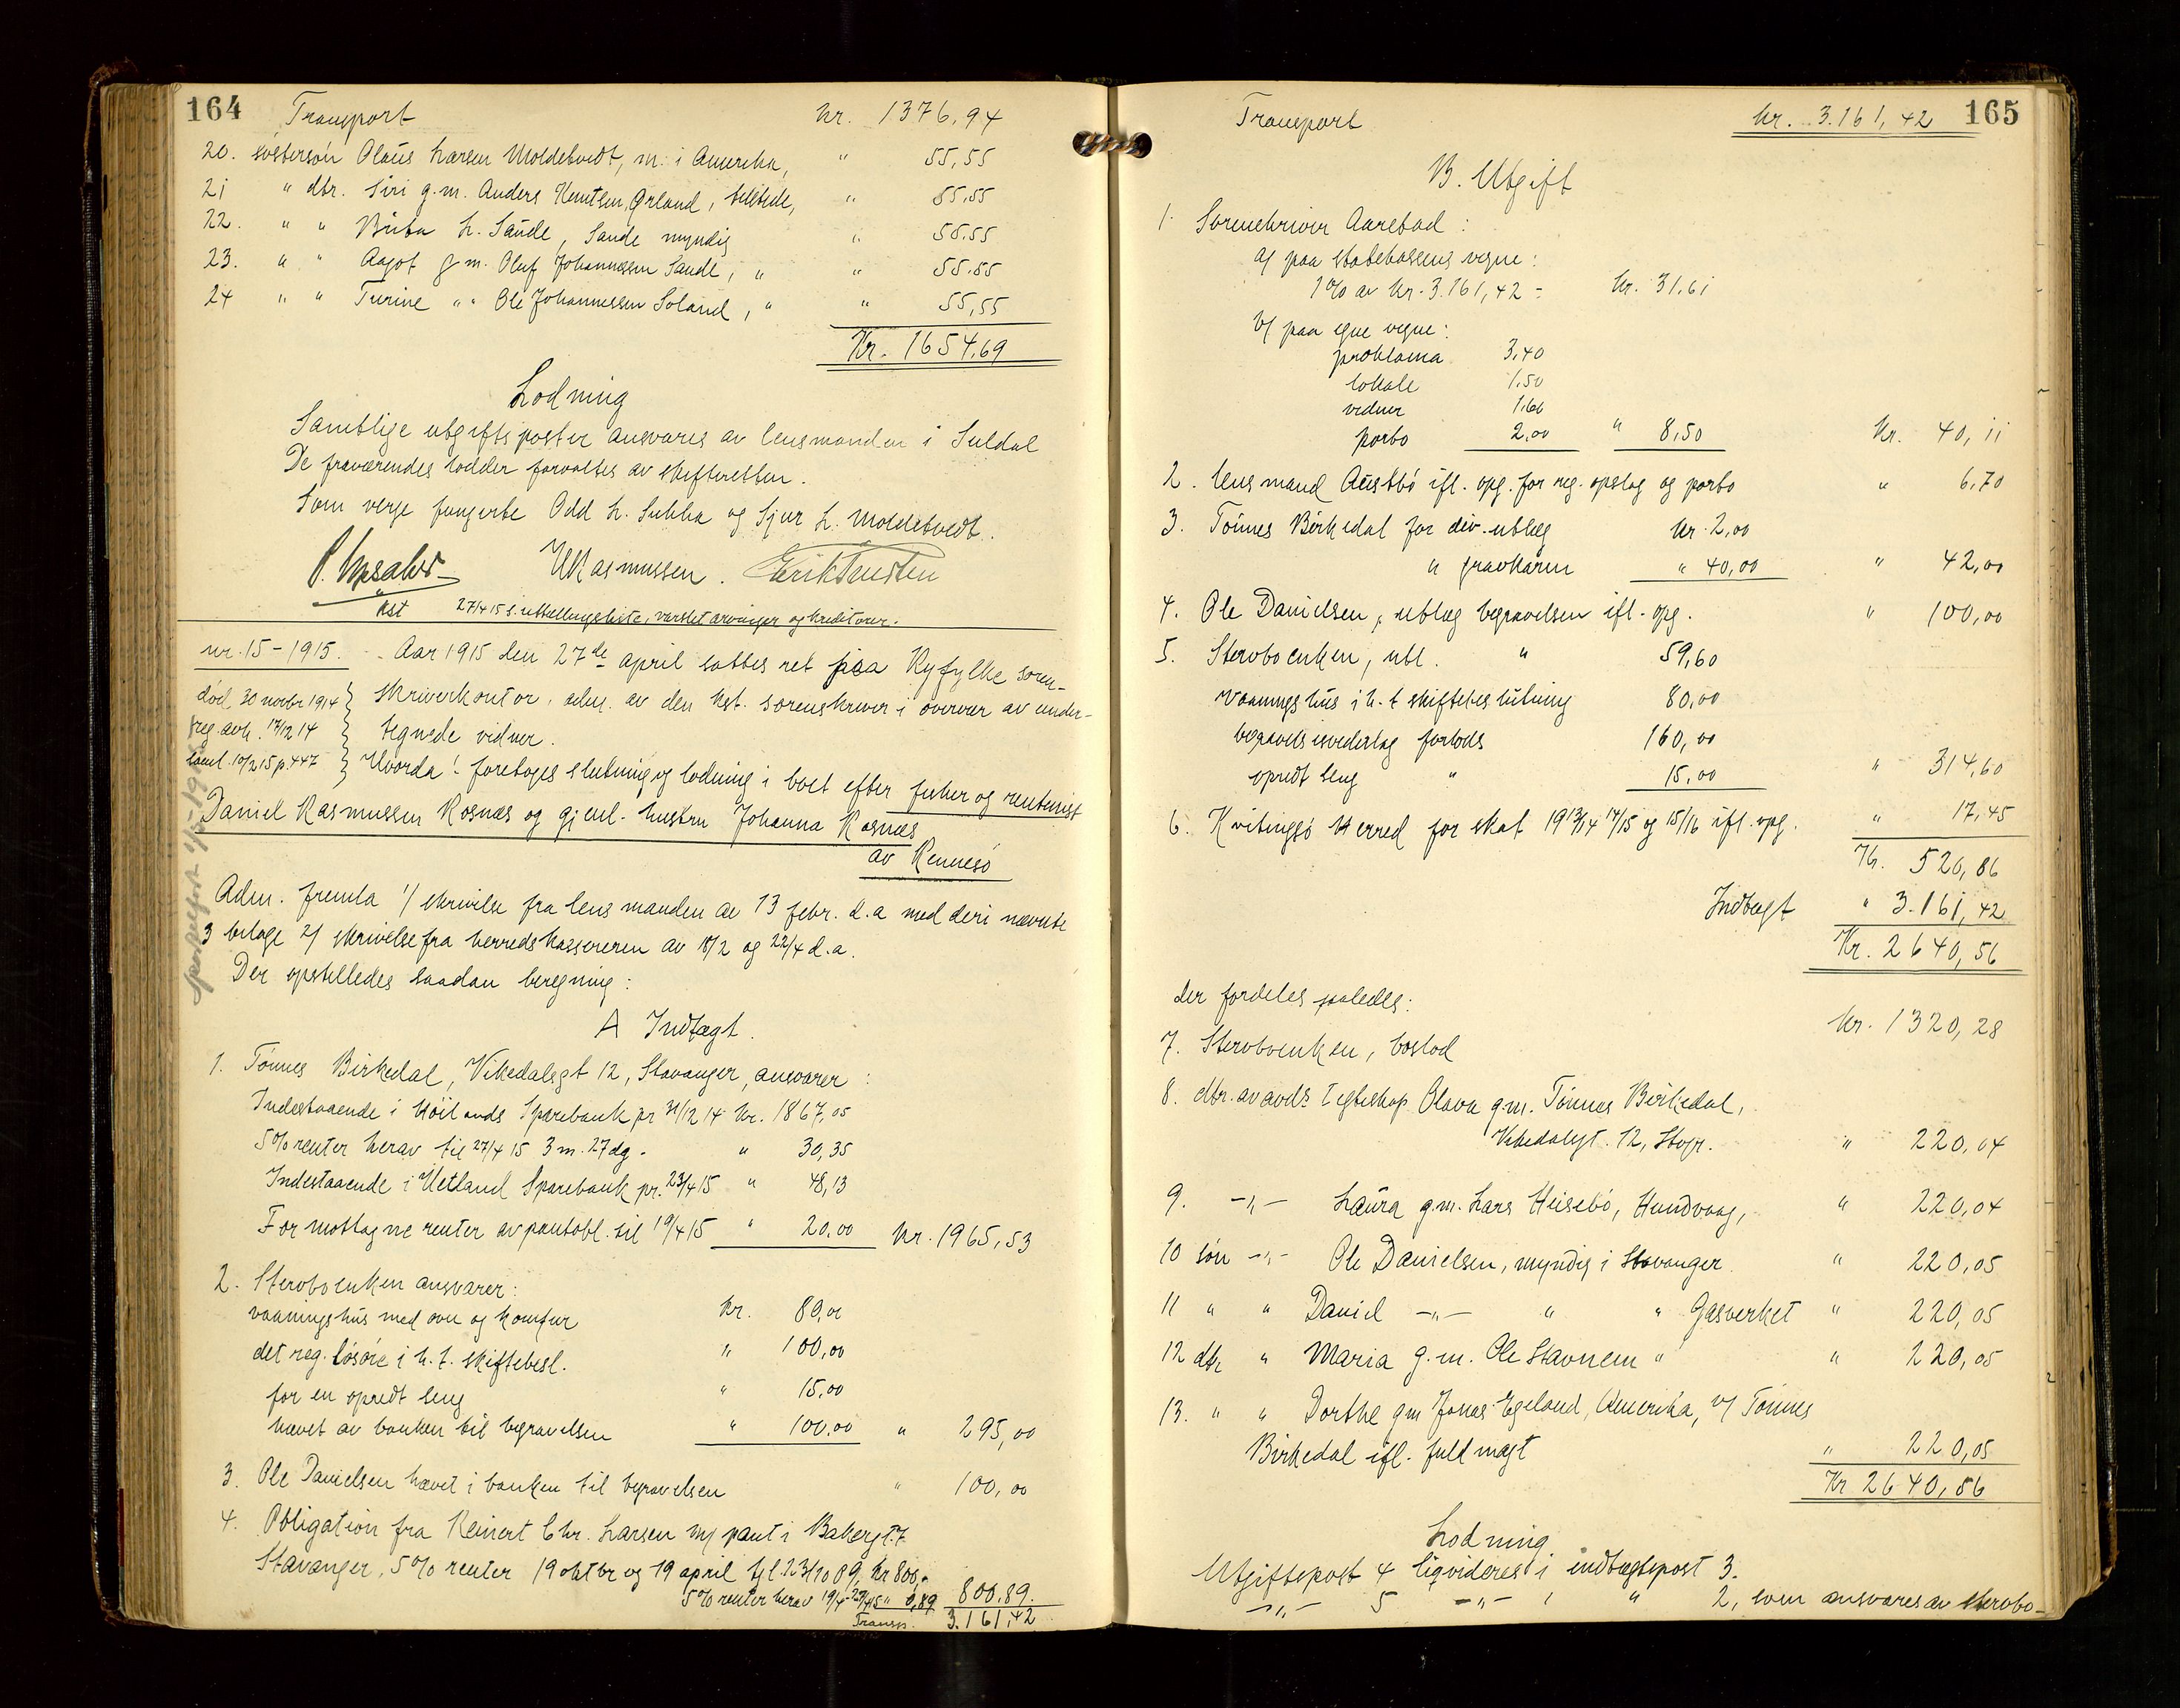 164 Transport kr. 1376,94
20. søstersøn Olaus Larsen Moldetvedt, m. i Amerika, " 55,55
21 " dtr. Siri g.m. Anders Knutsen Ørland, tilstede, " 55,55
22. " " Brita L. Sande, Sande myndig " 55,55
23. " " Aagot g.m. Oluf Johannessen Sande, " " 55,55
24 " " Turine " " Ole Johannessen Soland, " " 55,55
Kr. 1654,69
Lodning
Samtlige utgiftsposter ansvares av lensmanden i Suldal
De fraværendes lodder forvaltes av skifteretten.
Som verge fungerte Odd L. Sukka og Sjur L. Moldetvedt.
Rasmussen.
kst 27/4 15 s. utstellingsliste, varslet arvinger og kreditorer.
nr. 15-1915. Aar 1915 den 27de april sattes ret paa Ryfylke soren-
død 30 novbr 1914 skriverkontor, adm. av den kst. sorenskriver i overvær av under-
reg. avh. 17/12 14 tegnede vidner.
10/2 15 p. 447 Hvorda! foretoges slutning og lodning i boet efter fisker og rentenist
Daniel Rasmussen Rosnæs og gjenl. hustru Johanna Rosnæs
av Rennesø
Adm. fremla 1/ skrivelse fra lensmanden av 13 febr. d.a med deri nævnte
3 bilage 2/ skrivelse fra herredskassereren av 18/2 og 22/4 d.a.
Der opstilledes saadan beregning:
A Indtægt.
1. Tønnes Birkedal, Vikedalsgt 12, Stavanger, ansvarer:
Indestaaende i Høilands Sparebank pr 31/12 14 kr. 1867,05
5% renter herav til 27/4 15 3 m. 27 dg. " 30,35
Indestaaende i Hetland Sparebank pr. 23/4 15 " 48,13
For mottagne renter av pantobl. til 19/4 15 " 20,00 kr. 1965,53
2. Stervboenken ansvarer:
vaaningshus med ovn og komfur kr. 80,00
det reg. løsøre i h.t. skiftebesl. " 100,00
for en opredt seng " 15,00
hævet av banken til begravelsen " 100,00 " 295,00
3. Ole Danielsen hævet i banken til begravelsen " 100,00
4. Obligation fra Reinert Chr. Larsen m/ pant i Bakergt. 7
Stavanger, 5% renter 19 oktbr og 19 april tgl. 23/10 09, kr 800,-
5% renter herav 19/4-27/4 15 " 0,89 800,89.
Transp. 3.161,42
Transport kr. 3.161,42 165
B. Utgift
1. Sorenskriver Aarestad:
a/ paa statskassens vegne:
1% av kr. 3.161,42 = kr. 31,61
b/ paa egne vegne:
proklama 3,40
lokale 1,50
vidner 1,60
porto 2,00 " 8,50 kr. 40,11
2. Lensmand Austbø ifl. opg. for reg. opslag og porto " 6,70
3. Tønnes Birkedal for div. utlæg kr. 2,00
" gravkarm " 40,00 " 42,00
4. Ole Danielsen, utlæg begravelsen ifl. opg. " 100,00
5. Stervboenken, utl. " 59,60
vaaningshus i h.t skiftebeslutning 80,00
begravelsesvederlag forlods 160,00
opredt seng " 15,00 " 314,60
6. Kvitingsø herred for skat 1913/14 14/15 og 15/16 ifl. opg. " 17,45
Kr. 520,86
Indtægt " 3.161,42
Kr. 2640,56
der fordeles saaledes:
7. Stervboenken, boslod kr. 1320,28
8. dtr. av avdes egteskap Olava g.m. Tønnes Birkedal,
Vikedalsgt. 12, Stvgr. " 220,04
9. -"- Laura g.m. Lars Heisebø, Hundvaag, " 220,04
10 søn -"- Ole Danielsen, myndig i Stavanger " 220,05
11 " " Daniel -"- " " Gasverket " 220,05
12 dtr " Maria g.m. Ole Stavnem " " 220,05
13. " " Dorthe gm Jonas Egeland, Amerika, v/ Tønnes
Birkedal ifl. fuldmagt " 220,05
Kr 2640,56
Lodning
Utgiftspost 4 likvideres i indtægtspost 3.
-"- 5 -"- " 2, som ansvares av stervbo-